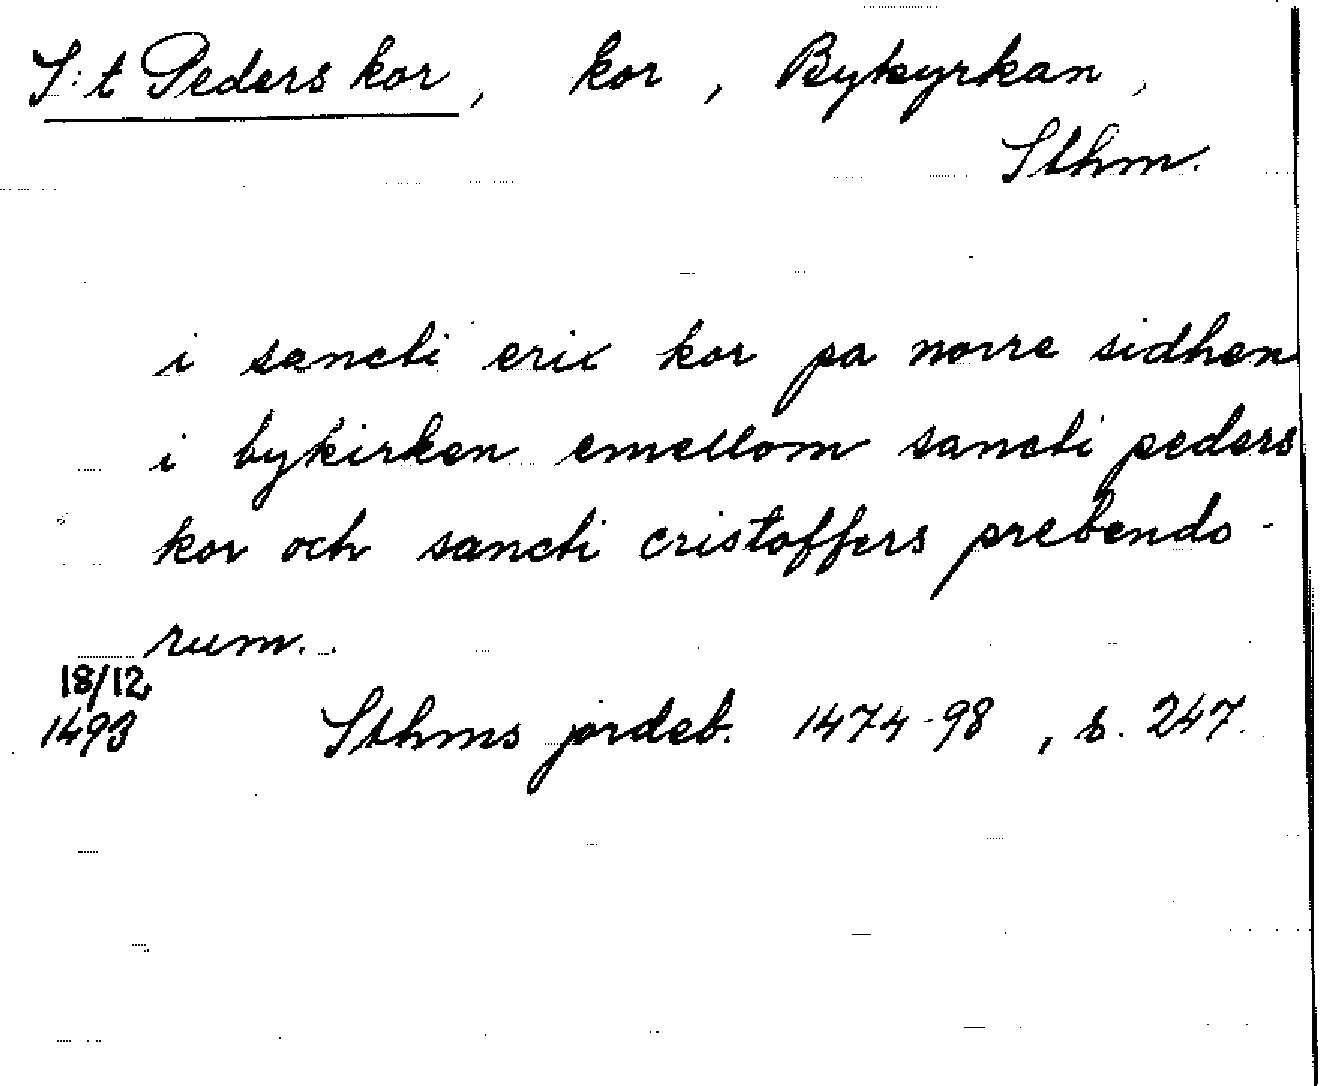 S:t Peders kor, kor, Bykyrkan,
Sthm.
i sancti erix kor pa norre sidhen
i bykirken emellom sancti peders
kor och sancti cristoffers prebendo-
rum.
18/12
1493 Sthms jordeb. 1474-98, s. 247.